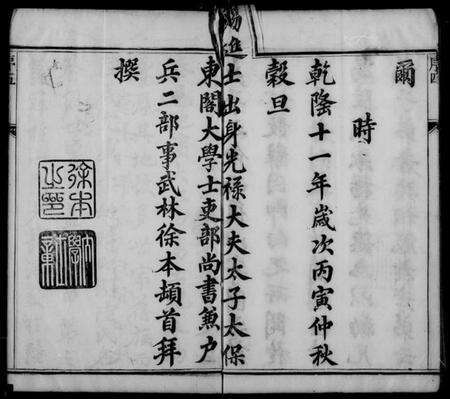 爾
時
乾隆十一年歲次丙寅仲秋
穀旦
賜進士出身光祿大夫太子太保
東閣大學士吏部尚書兼户
兵二部事武林徐本頓首拜
撰
徐本之印
序五